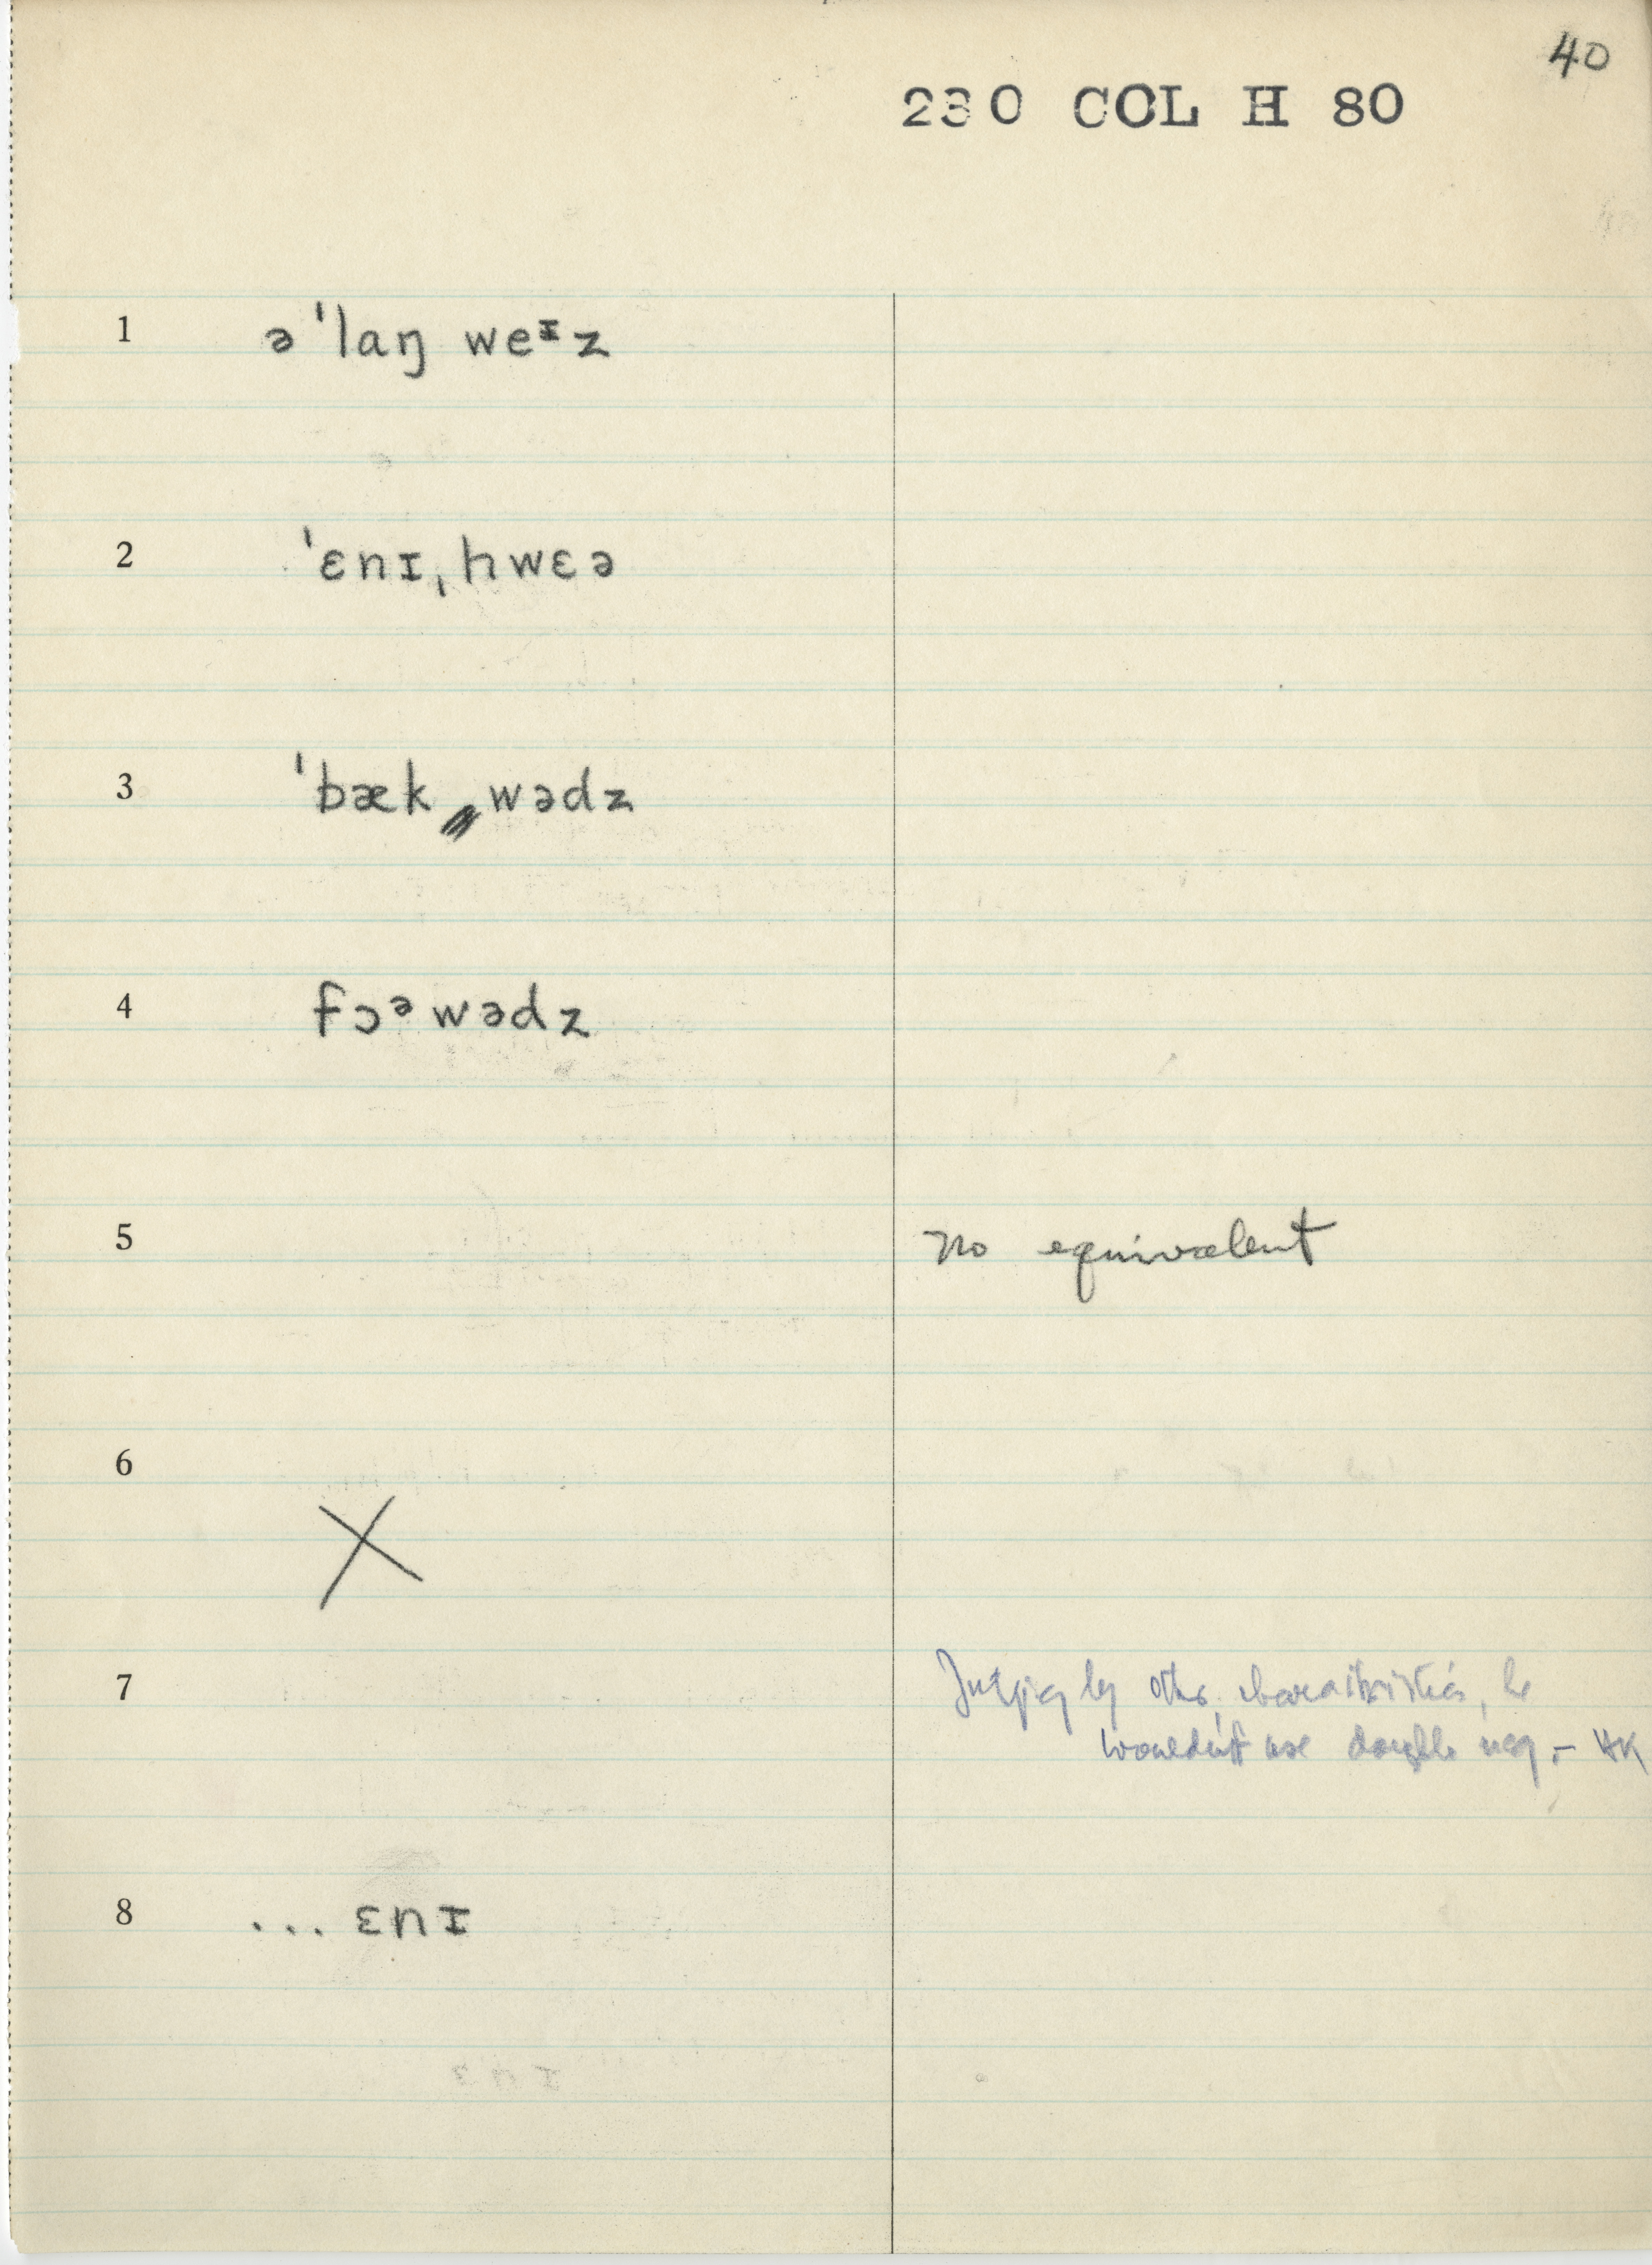 40
230 COL H 80
1 ə ˈlaŋ weᶦz
2 ˈɛnɪˌhwɛə
3 ˈbæk wədz
4 fɔᵊwədz
5 no equivalent
6 X
7 Judging by other characteristics, he
wouldn't use double neg. – HK
8 ... ɛnɪ